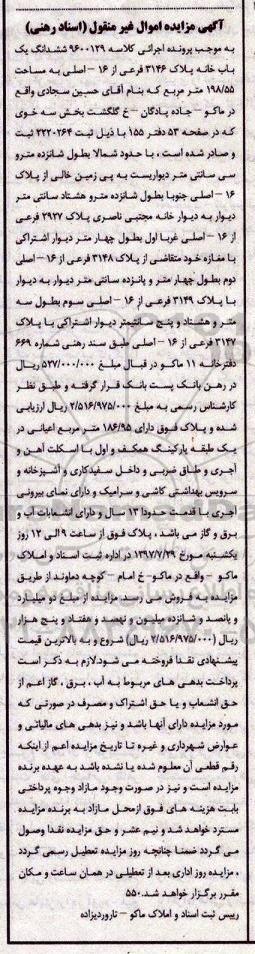 آگهی مزایده اموال غیر منقول (اسناد رهنی)
به موجب پرونده اجرائی کلاسه ۹۶۰۰۱۲۹ ششدانگ یک
باب خانه پلاک ۳۱۴۶ فرعی از ۱۶ - اصلی به مساحت
۱۹۸/۵۵ متر مربع که بنام آقای حسین سجادی واقع
در ماکو - جاده پادگان - خ گلگشت بخش سه خوی
که در صفحه ۵۳ دفتر ۱۵۵ با ذیل ثبت ۲۲۲۰۲۶۴ ثبت
و صادر شده است ، با حدود شمالا بطول شانزده مترو
سی سانتی متر دیواریست به پی زمین خالی از پلاک
۱۶ - اصلی جنوبا بطول شانزده مترو هشتاد سانتی متر
دیوار به دیوار خانه مجتبی ناصری پلاک ۲۹۲۷ فرعی
از ۱۶ - اصلی غربا اول بطول چهار متر دیوار اشتراکی
با مغازه خود متقاضی از پلاک ۳۱۴۸ فرعی از ۱۶ - اصلی
دوم بطول چهار متر و پانزده سانتی متر دیوار به دیوار
با پلاک ۳۱۴۹ فرعی از ۱۶ - اصلی سوم بطول سه
متر و هشتاد و پنج سانتیمتر دیوار اشتراکی با پلاک
۳۱۴۷ فرعی از ۱۶ - اصلی طبق سند رهنی شماره ۶۶۹
دفترخانه ۱۱ ماکو در قبال مبلغ ۵۳۷/۰۰۰/۰۰۰ ریال
در رهن بانک پست بانک قرار گرفته و طبق نظر
کارشناس رسمی به مبلغ ۲/۵۱۶/۹۷۵/۰۰۰ ریال ارزیابی
شده و پلاک فوق دارای ۱۸۶/۹۵ متر مربع اعیانی در
یک طبقه پارکینگ همکف و اول با اسکلت آهن و
آجری و طاق ضربی و داخل سفیدکاری و آشپزخانه و
سرویس بهداشتی کاشی و سرامیک و دارای نمای بیرونی
آجری با قدمت حدودا ۱۳ سال و دارای انشعابات آب و
برق و گاز می باشد ، پلاک فوق از ساعت ۹ الی ۱۲ روز
یکشنبه مورخ ۱۳۹۷/۷/۲۹ در اداره ثبت اسناد و املاک
ماکو - واقع در ماکو - خ امام - کوچه دماوند از طریق
مزایده به فروش می رسد مزایده از مبلغ دو میلیارد
و پانصد و شانزده میلیون و نهصد و هفتاد و پنج هزار
ریال (۲/۵۱۶/۹۷۵/۰۰۰ ریال) شروع و به بالاترین قیمت
پیشنهادی نقدا فروخته می شود.لازم به ذکر است
پرداخت بدهی های مربوط به آب ، برق ، گاز اعم از
حق انشعاب و یا حق اشتراک و مصرف در صورتی که
مورد مزایده دارای آنها باشد و نیز بدهی های مالیاتی و
عوارض شهرداری و غیره تا تاریخ مزایده اعم از اینکه
رقم قطعی آن معلوم شده یا نشده باشد به عهده برنده
مزایده است و نیز در صورت وجود مازاد وجوه پرداختی
بابت هزینه های فوق ازمحل مازاد به برنده مزایده
مسترد خواهد شد و نیم عشر و حق مزایده نقدا وصول
می گردد ضمنا چنانچه روز مزایده تعطیل رسمی گردد
، مزایده روز اداری بعد از تعطیلی در همان ساعت و مکان
مقرر برگزار خواهد شد.۵۵۰
رییس ثبت اسناد و املاک ماکو - تاروردیزاده